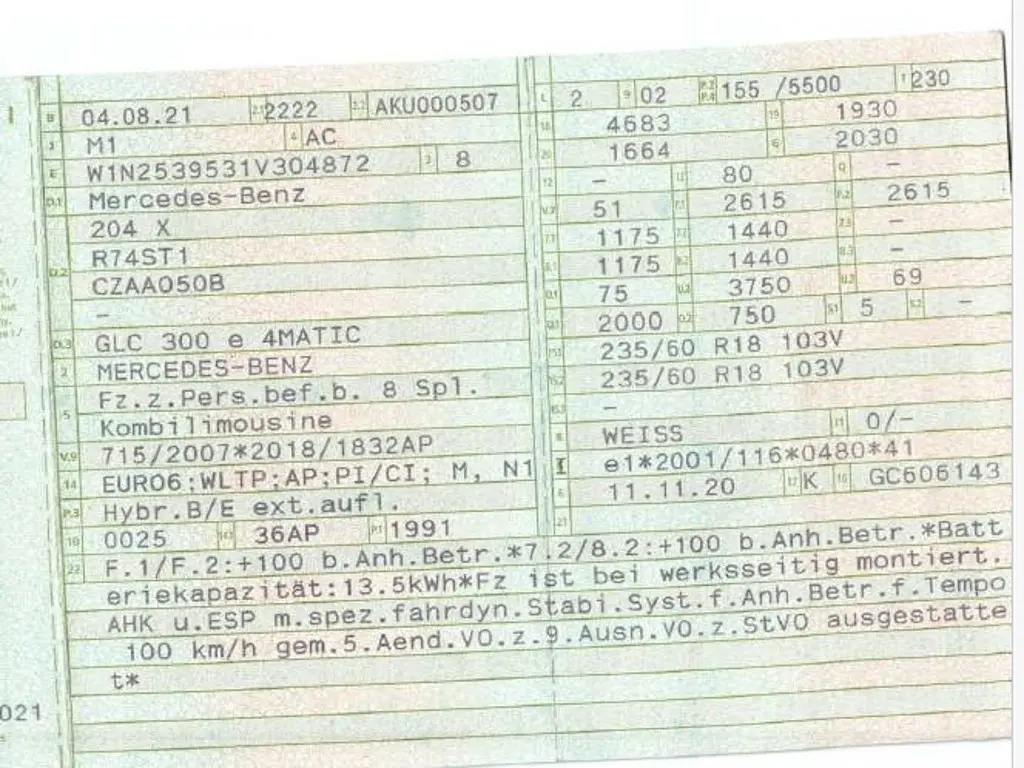 B 04.08.21 2.1 2222 2.2 AKU000507
J M1 4 AC
E W1N2539531V304872 3 8
D.1 Mercedes-Benz
204 X
D.2 R74ST1
CZAA050B
–
D.3 GLC 300 e 4MATIC
2 MERCEDES-BENZ
5 Fz.z.Pers.bef.b. 8 Spl.
Kombilimousine
V.9 715/2007*2018/1832AP
14 EURO6;WLTP;AP;PI/CI; M, N1
P.3 Hybr.B/E ext.aufl.
10 0025 14.1 36AP P.1 1991
L 2 9 02 P.2 P.4 155 /5500 T 230
18 4683 19 1930
20 1664 G 2030
12 – 13 80 Q –
V.7 51 F.1 2615 F.2 2615
7.1 1175 7.2 1440 7.3 –
8.1 1175 8.2 1440 8.3 –
U.1 75 U.2 3750 U.3 69
O.1 2000 O.2 750 S.1 5 S.2 –
15.1 235/60 R18 103V
15.2 235/60 R18 103V
15.3 –
R WEISS 11 0/–
K e1*2001/116*0480*41
6 11.11.20 17 K 16 GC606143
21
22 F.1/F.2:+100 b.Anh.Betr.*7.2/8.2:+100 b.Anh.Betr.*Batt
eriekapazität:13.5kWh*Fz ist bei werksseitig montiert.
AHK u.ESP m.spez.fahrdyn.Stabi.Syst.f.Anh.Betr.f.Tempo
100 km/h gem.5.Aend.VO.z.9.Ausn.VO.z.StVO ausgestatte
t*
021